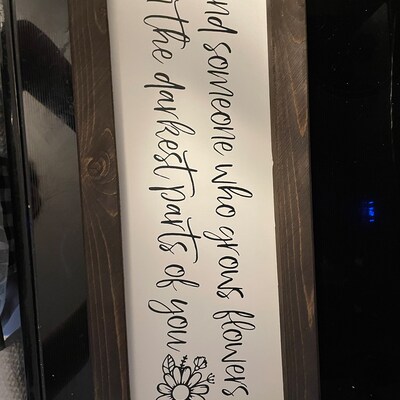 nd someone who grows flowers
n the darkest parts of you